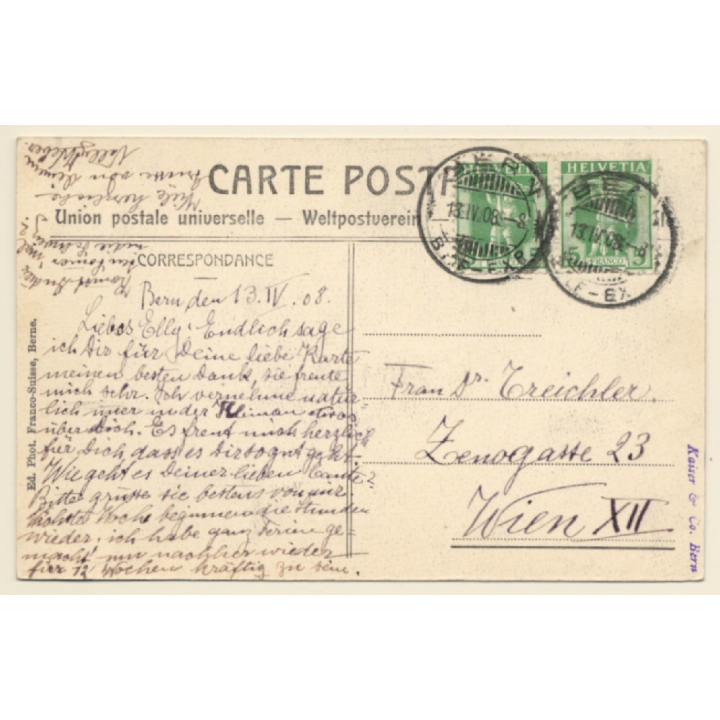 CARTE POSTA
Union postale universelle — Weltpostverein
CORRESPONDANCE
Bern den 13. IV. 08.
Liebes Elly! Endlich sage
ich Dir für Deine liebe Karte
meinen besten Dank, sie freute
mich sehr. Ich vernehme natür-
lich immer in der
über Dich. Es freut mich herzlich
für Dich dass es Dir so gut geht.
Wie geht es Deiner lieben Tante?
Bitte grüsse sie bestens von mir
nächste Woche beginnen die Stunden
wieder, ich habe ganz Ferien ge-
macht um nachher wieder
für 12 Wochen kräftig zu sein.
Viele herzliche
Grüsse von Deinem
HELVETIA
FRANCO
5
BERN
13.IV.08.-8
BRF-EXP.
BERN
13.IV.08.-8
BRF-EX
Frau Dr. Treichler.
Zenogasse 23
Wien XII
Ed. Phot. Franco-Suisse, Berne.
Kaiser & Co. Bern